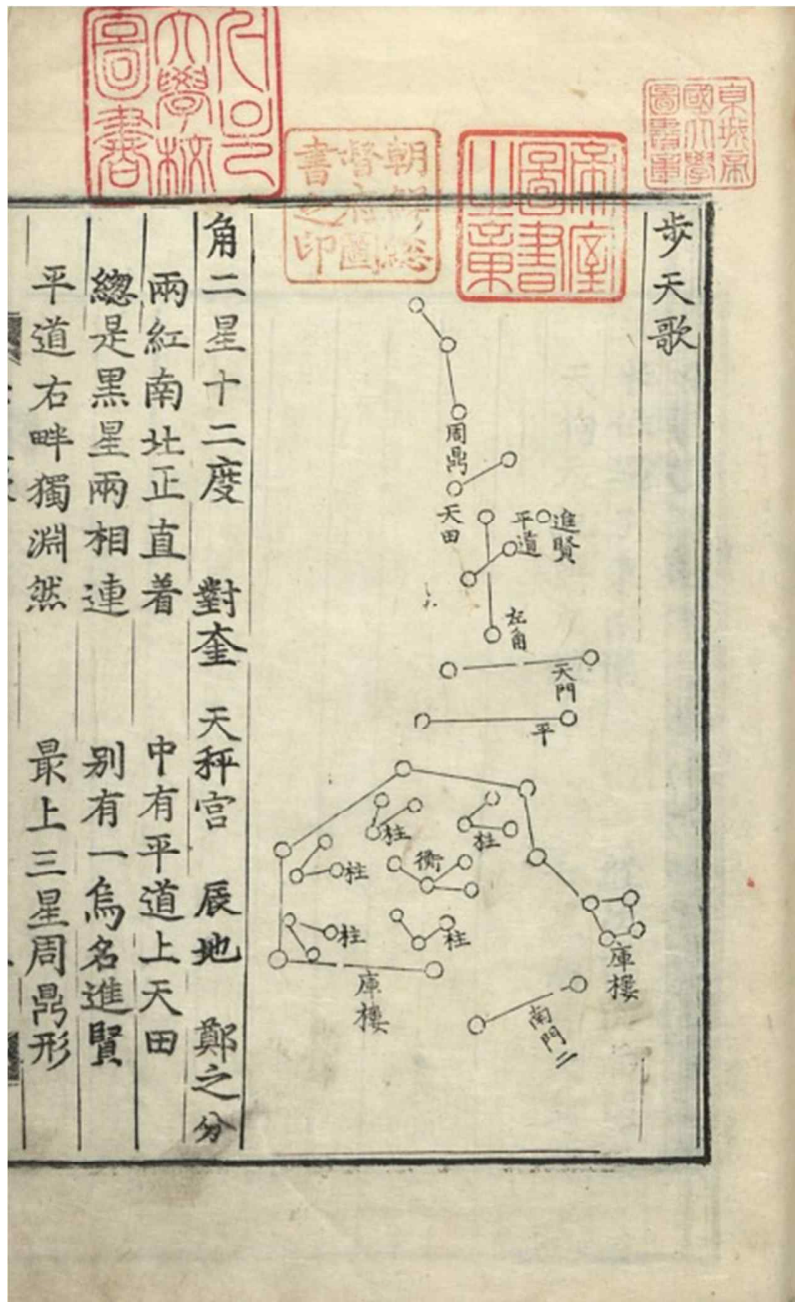 帝室
圖書
之章
朝鮮總
督府圖
書之印
大學校
圖書
步天歌
周鼎
天田
進賢
平道
角
天門
平
柱
柱
衡
柱
柱
柱
庫樓
庫樓
南門二
角二星十二度 對奎 天秤宮 辰地 鄭之分
兩紅南北正直着 中有平道上天田
總是黑星兩相連 別有一烏名進賢
平道右畔獨淵然 最上三星周鼎形